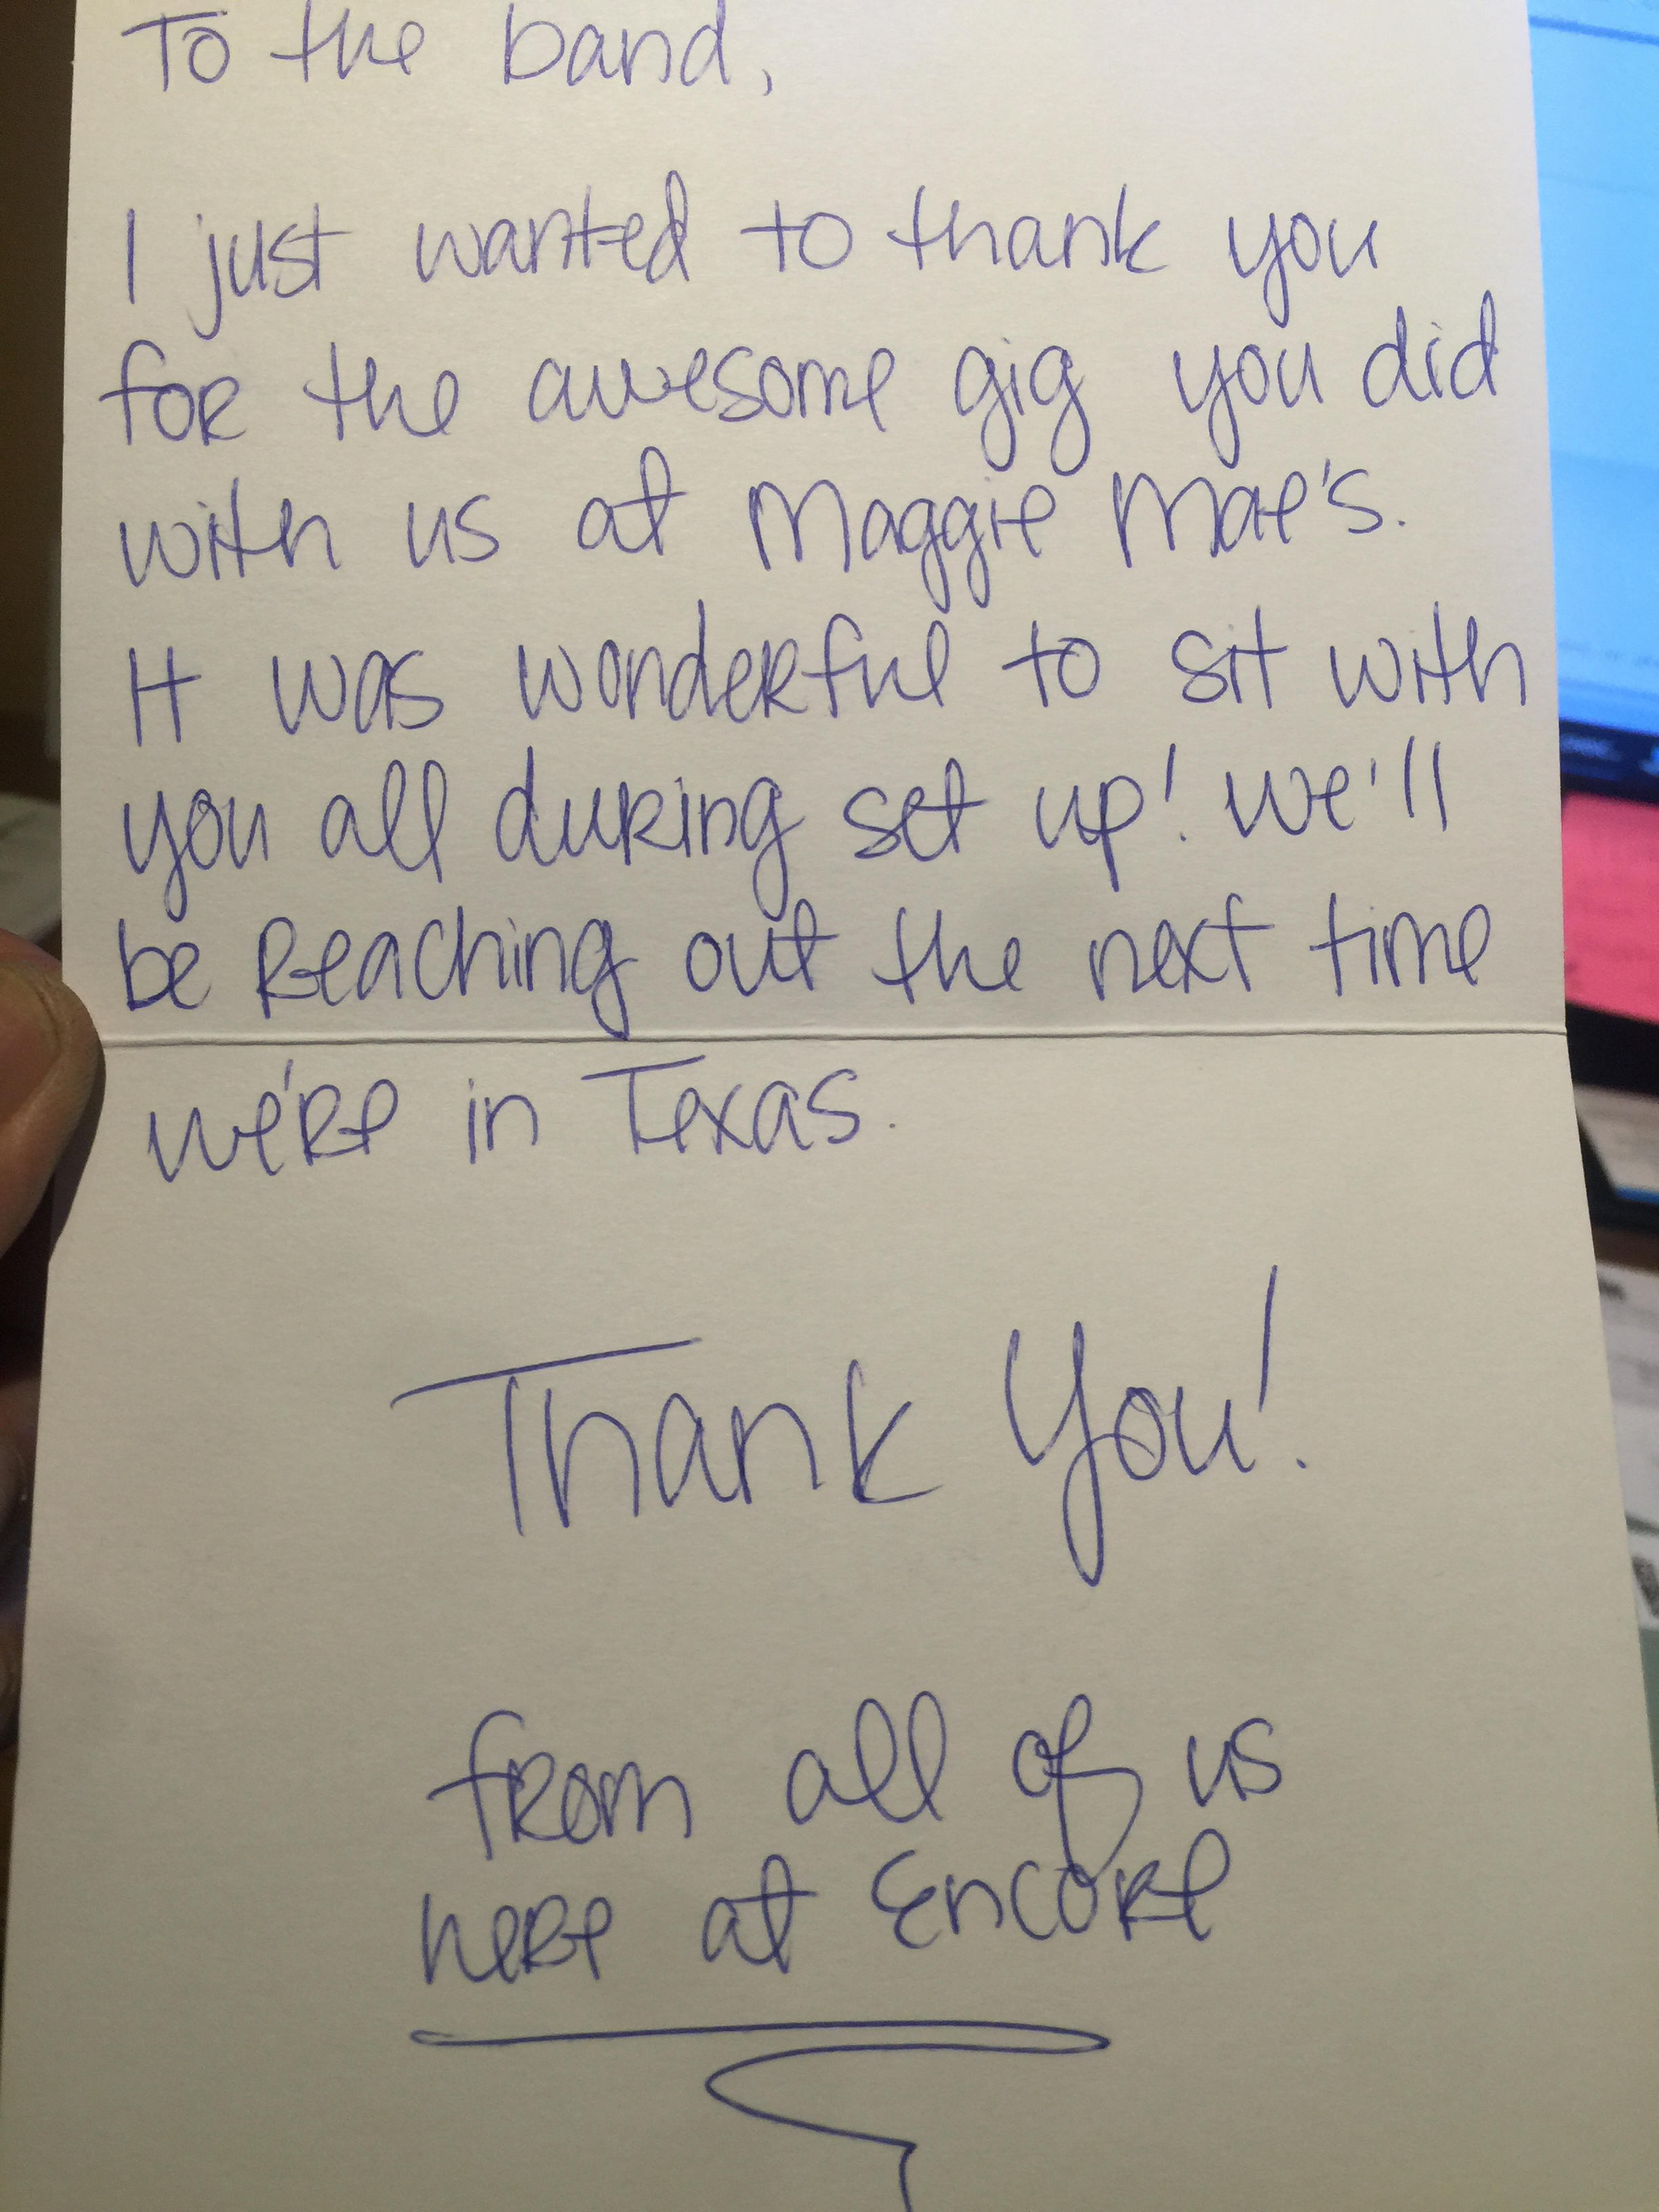 To the band,
I just wanted to thank you
for the awesome gig you did
with us at Maggie Mae's.
It was wonderful to sit with
you all during set up! We'll
be reaching out the next time
we're in Texas.
Thank You!
from all of us
here at Encore